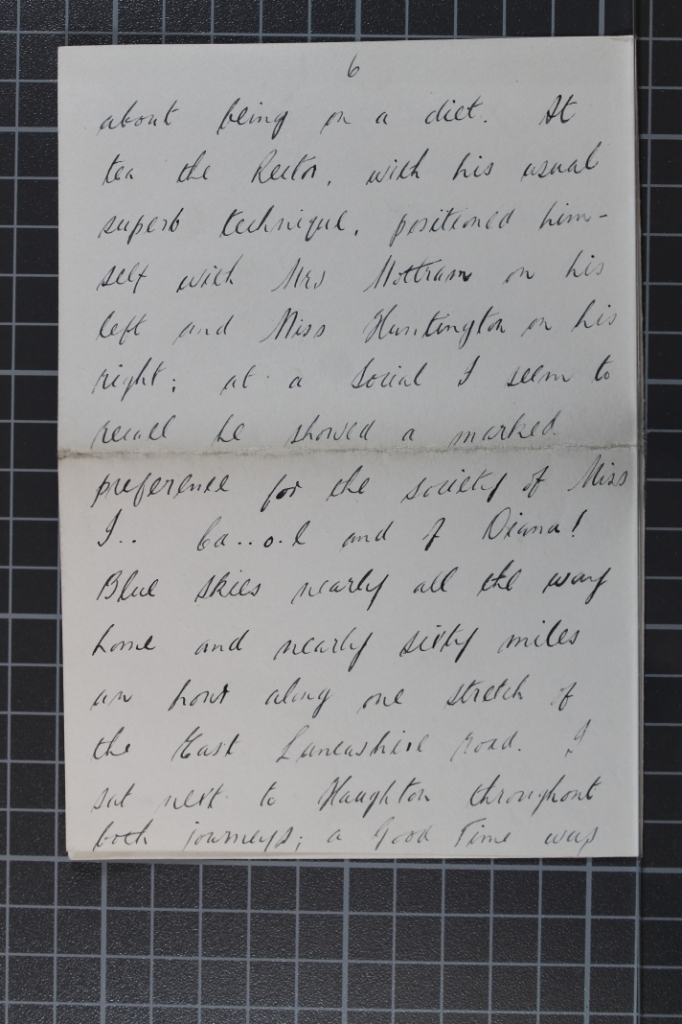 6
about being on a diet. At
tea the Rector, with his usual
superb technique, positioned him-
self with Mrs Mottram on his
left and Miss Huntington on his
right; at a Social I seem to
recall he showed a marked
preference for the society of Miss
I.. Ca..o.l and of Diana!
Blue skies nearly all the way
home and nearly sixty miles
an hour along one stretch of
the East Lancashire road. I
sat next to Haughton throughout
both journeys; a Good Time was